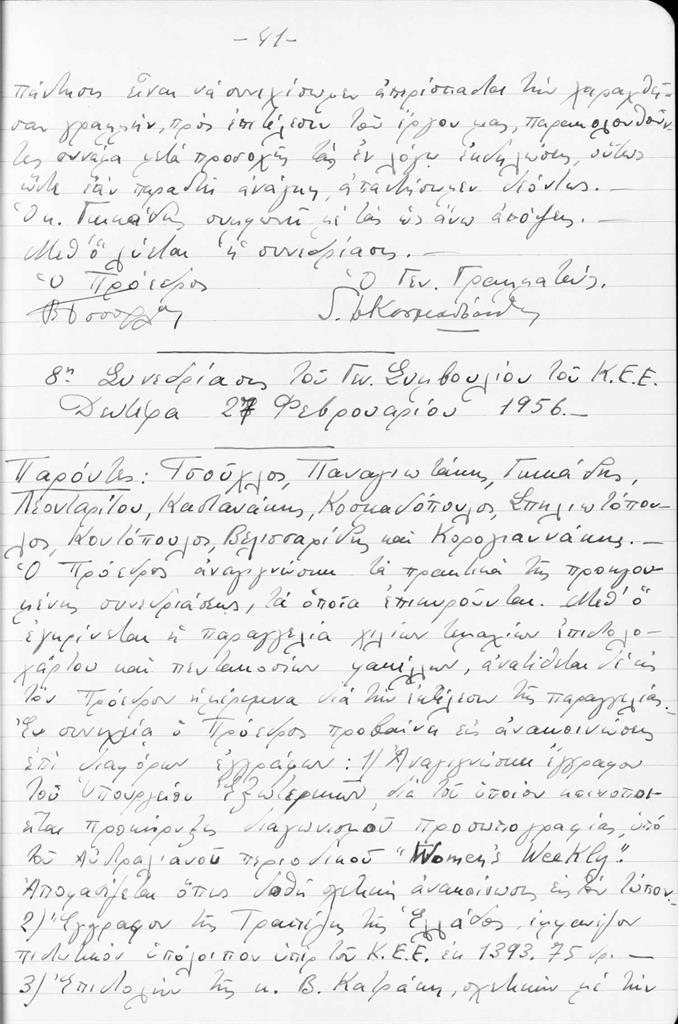 -41-
πάντησις εἶναι νά συνεχίσωμεν ἀπερίσπαστοι τήν χαραχθεῖ-
σαν γραμμήν, πρός ἐπιτέλεσιν τοῦ ἔργου μας, παρακολουθοῦν-
τες συνάμα μετά προσοχῆς τάς ἐν λόγῳ ἐκδηλώσεις, οὕτως
ὥστε ἐάν παραστῇ ἀνάγκη, ἀπαντήσωμεν δεόντως.—
Ὁ κ. Γκικάδης συμφωνεῖ μέ τάς ὡς ἄνω ἀπόψεις.—
Μεθ' ὅ λύεται ἡ συνεδρίασις.—
Ὁ Πρόεδρος Ὁ Γεν. Γραμματεύς.
8η Συνεδρίασις τοῦ Γεν. Συμβουλίου τοῦ Κ.Ε.Ε.
Δευτέρα 27 Φεβρουαρίου 1956.—
Παρόντες: Τσοῦχλος, Παναγιωτάκης, Γκικάδης,
Λεονταρίτου, Καστανάκης, Κοσμαδόπουλος, Σπηλιωτόπου-
λος, Κοντόπουλος, Βελισσαρίδης καί Κορογιαννάκης.—
Ὁ Πρόεδρος ἀναγιγνώσκει τά πρακτικά τῆς προηγου-
μένης συνεδριάσεως, τά ὁποῖα ἐπικυροῦνται. Μεθ' ὅ
ἐγκρίνεται ἡ παραγγελία χιλίων τεμαχίων ἐπιστολο-
χάρτου καί πεντακοσίων φακέλλων, ἀνατίθεται δέ εἰς
τόν Πρόεδρον ἡ μέριμνα διά τήν ἐκτέλεσιν τῆς παραγγελίας.
Ἐν συνεχείᾳ ὁ Πρόεδρος προβαίνει εἰς ἀνακοινώσεις
ἐπί διαφόρων ἐγγράφων: 1) Ἀναγιγνώσκει ἔγγραφον
τοῦ Ὑπουργείου Ἐξωτερικῶν, διά τοῦ ὁποίου κοινοποι-
εῖται προκήρυξις διαγωνισμοῦ προσωπογραφίας, ὑπό
τοῦ Αὐστραλιανοῦ περιοδικοῦ "Women's Weekly".
Ἀποφασίζεται ὅπως δοθῇ σχετική ἀνακοίνωσις εἰς τόν τύπον.
2) Ἔγγραφον τῆς Τραπέζης τῆς Ἑλλάδος, ἐμφανίζον
πιστωτικόν ὑπόλοιπον ὑπέρ τοῦ Κ.Ε.Ε. ἐκ 1393.75 δρ.—
3) Ἐπιστολήν τῆς κ. Β. Κατράκη, σχετικήν μέ τήν